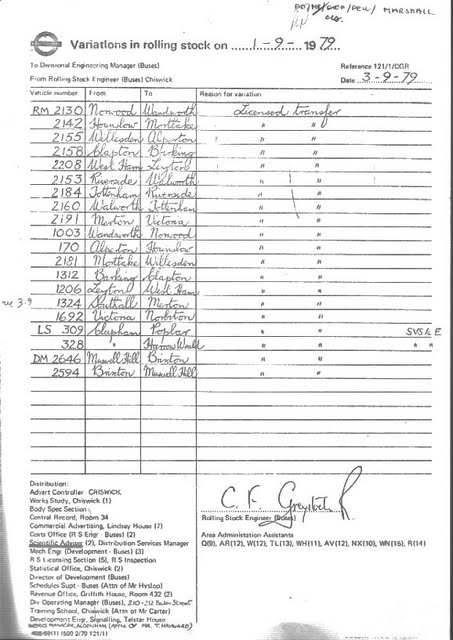 MARSHALL
Variations in rolling stock on 1-9-1979
To Divisional Engineering Manager (Buses) Reference 121/1/CGR
From Rolling Stock Engineer (Buses) Chiswick Date 3-9-79
Vehicle number From To Reason for variation
RM 2130 Norwood Wandsworth Licensed transfer
2142 Hounslow Mortlake " "
2155 Willesden Alperton " "
2158 Clapton Barking " "
2208 West Ham Leyton " "
2153 Riverside Walworth " "
2184 Tottenham Riverside " "
2160 Walworth Tottenham " "
2191 Merton Victoria " "
1003 Wandsworth Norwood " "
170 Alperton Hounslow " "
2181 Mortlake Willesden " "
1312 Barking Clapton " "
1206 Leyton West Ham " "
3.9 1324 Southall Merton " "
1692 Victoria Norbiton " "
LS 309 Clapham Poplar " " SVS & E
328 " Harrow Weald " " " "
DM 2646 Muswell Hill Brixton " "
2594 Brixton Muswell Hill " "
Distribution:
Advert Controller CHISWICK
Works Study, Chiswick (1)
Body Spec Section
Central Record, Room 34
Commercial Advertising, Lindsay House (7)
Costs Office (R S Engr Buses) (2)
Scientific Adviser (2), Distribution Services Manager
Mech Engr (Development - Buses) (3)
R S Licensing Section (5), R S Inspection
Statistical Office, Chiswick (2)
Director of Development (Buses)
Schedules Supt - Buses (Attn of Mr Hyslop)
Revenue Office, Griffith House, Room 432 (2)
Div Operating Manager (Buses), 210-212 Baker Street
Training School, Chiswick (Attn of Mr Carter)
Development Engr, Signalling, Telstar House
WORKS MANAGER, ALDENHAM (ATTN OF MR. T. HAYWARD)
488/69(1) 1500 2/79 121/1
C. F.
Rolling Stock Engineer (Buses)
Area Administration Assistants
Q(9), AR(12), W(12), TL(13), WH(11), AV(12), NX(10), WN(15), R(14)